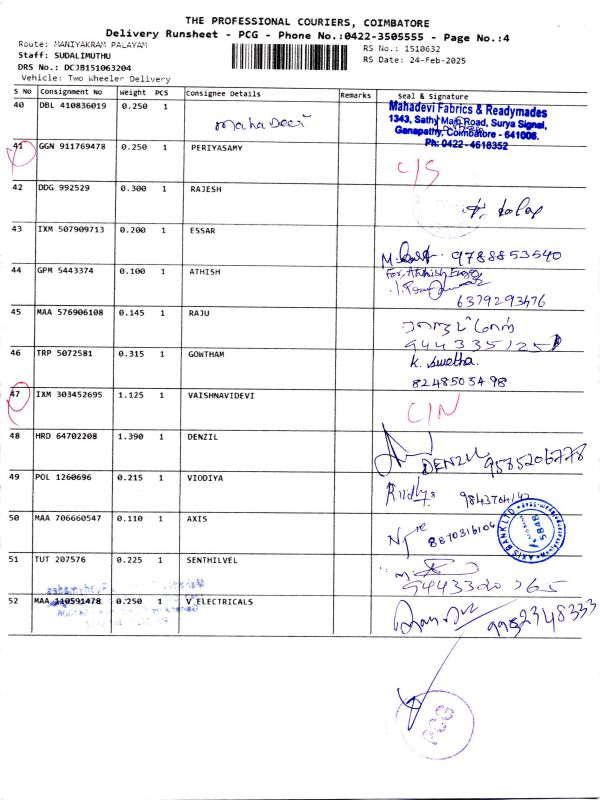 THE PROFESSIONAL COURIERS, COIMBATORE
Delivery Runsheet - PCG - Phone No.:0422-3505555 - Page No.:4
Route: MANIYAKRAM PALAYAM
RS No.: 1510632
Staff: SUDALIMUTHU
RS Date: 24-Feb-2025
DRS No.: DCJB151063204
Vehicle: Two Wheeler Delivery
S No Consignment No Weight PCS Consignee Details Remarks Seal & Signature
40 DBL 410836019 0.250 1 Mahadevi
Mahadevi Fabrics & Readymades
1343, Sathy Main Road, Surya Signal,
Ganapathy, Coimbatore - 641006.
Ph: 0422-4618352
41 GGN 911769478 0.250 1 PERIYASAMY C/S
42 DDG 992529 0.300 1 RAJESH
43 IXM 507909713 0.200 1 ESSAR 9788853540
44 GPM 5443374 0.100 1 ATHISH For Athish
6379293476
45 MAA 576906108 0.145 1 RAJU
944335125
46 TRP 5072581 0.315 1 GOWTHAM K. Swetha.
8248505498
47 IXM 303452695 1.125 1 VAISHNAVIDEVI C/N
48 HRD 64702208 1.390 1 DENZIL DENZIL 9585206778
49 POL 1260696 0.215 1 VIODIYA
50 MAA 706660547 0.110 1 AXIS 8870316104
AXIS BANK LTD
51 TUT 207576 0.225 1 SENTHILVEL
9443320765
52 MAA 110591478 0.250 1 V ELECTRICALS 9952348333
PCG